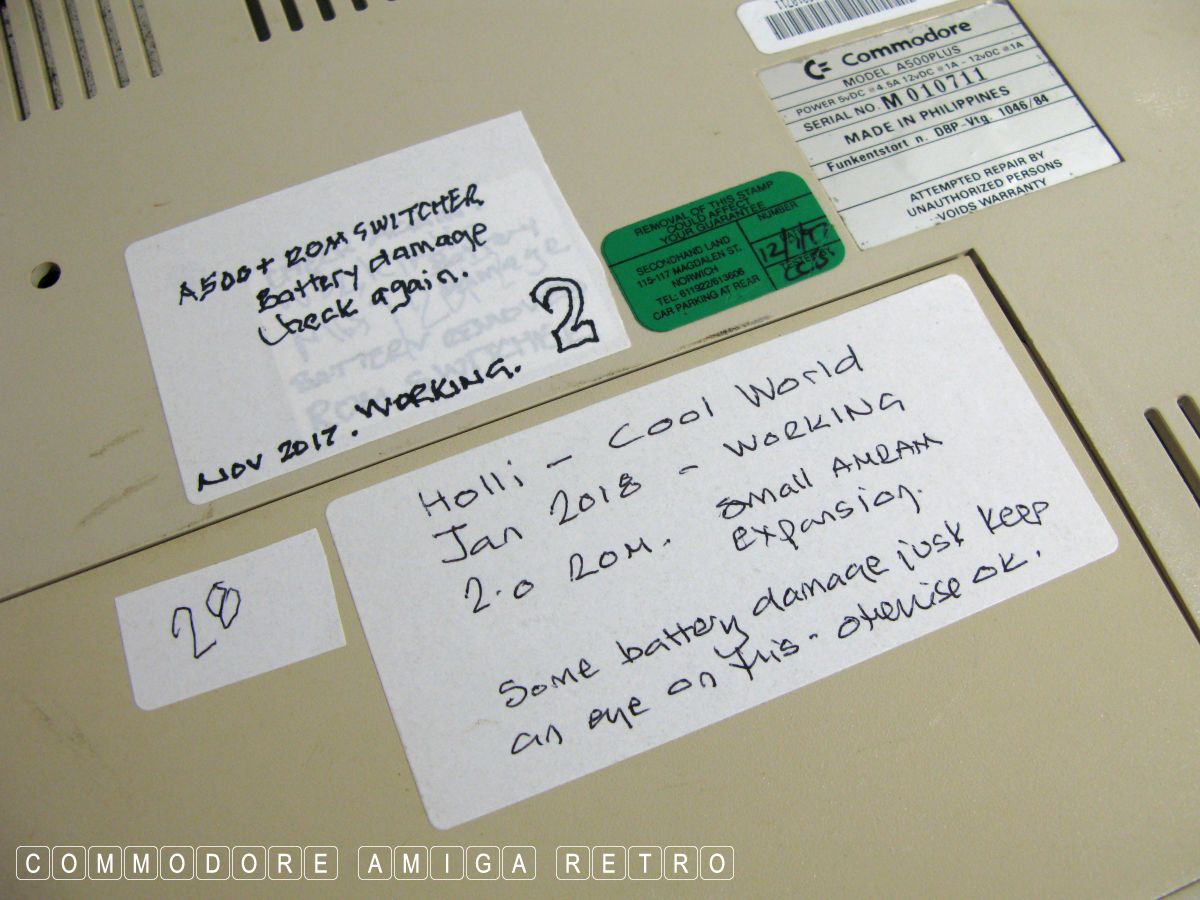 Commodore
MODEL A500PLUS
POWER 5vDC @4.5A 12vDC @1A - 12vDC @1A
SERIAL NO. M 010711
MADE IN PHILIPPINES
Funkentstort n. DBP-Vtg. 1046/84
ATTEMPTED REPAIR BY
UNAUTHORIZED PERSONS
VOIDS WARRANTY
REMOVAL OF THIS STAMP
COULD AFFECT
YOUR GUARANTEE
NUMBER
SECONDHAND LAND
115-117 MAGDALEN ST.
NORWICH
TEL: 611922/613606
CAR PARKING AT REAR
A500+ ROM SWITCHER
Battery damage
check again.
2
NOV 2017. WORKING.
Holli - Cool World
Jan 2018 - WORKING
2.0 ROM. small AMRAM
expansion.
Some battery damage just keep
an eye on this - otherwise ok.
28
COMMODORE AMIGA RETRO